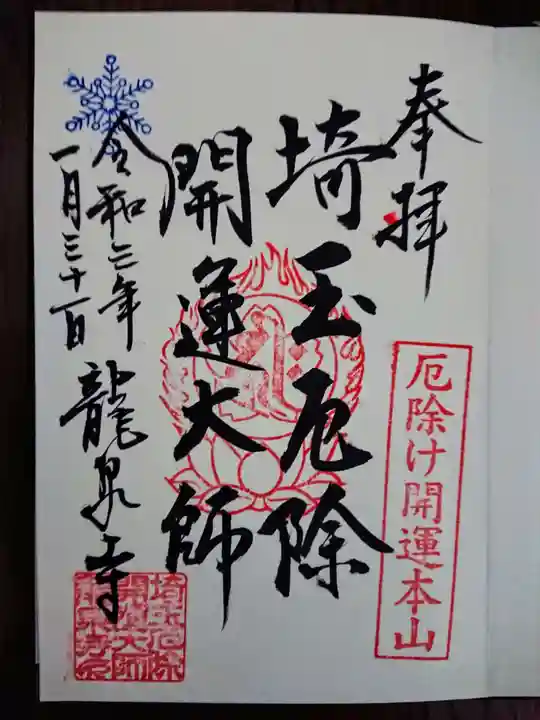 奉拝
厄除け開運本山
埼玉厄除
開運大師
令和三年
一月三十一日
龍泉寺
埼玉厄除
開運大師
龍泉寺印